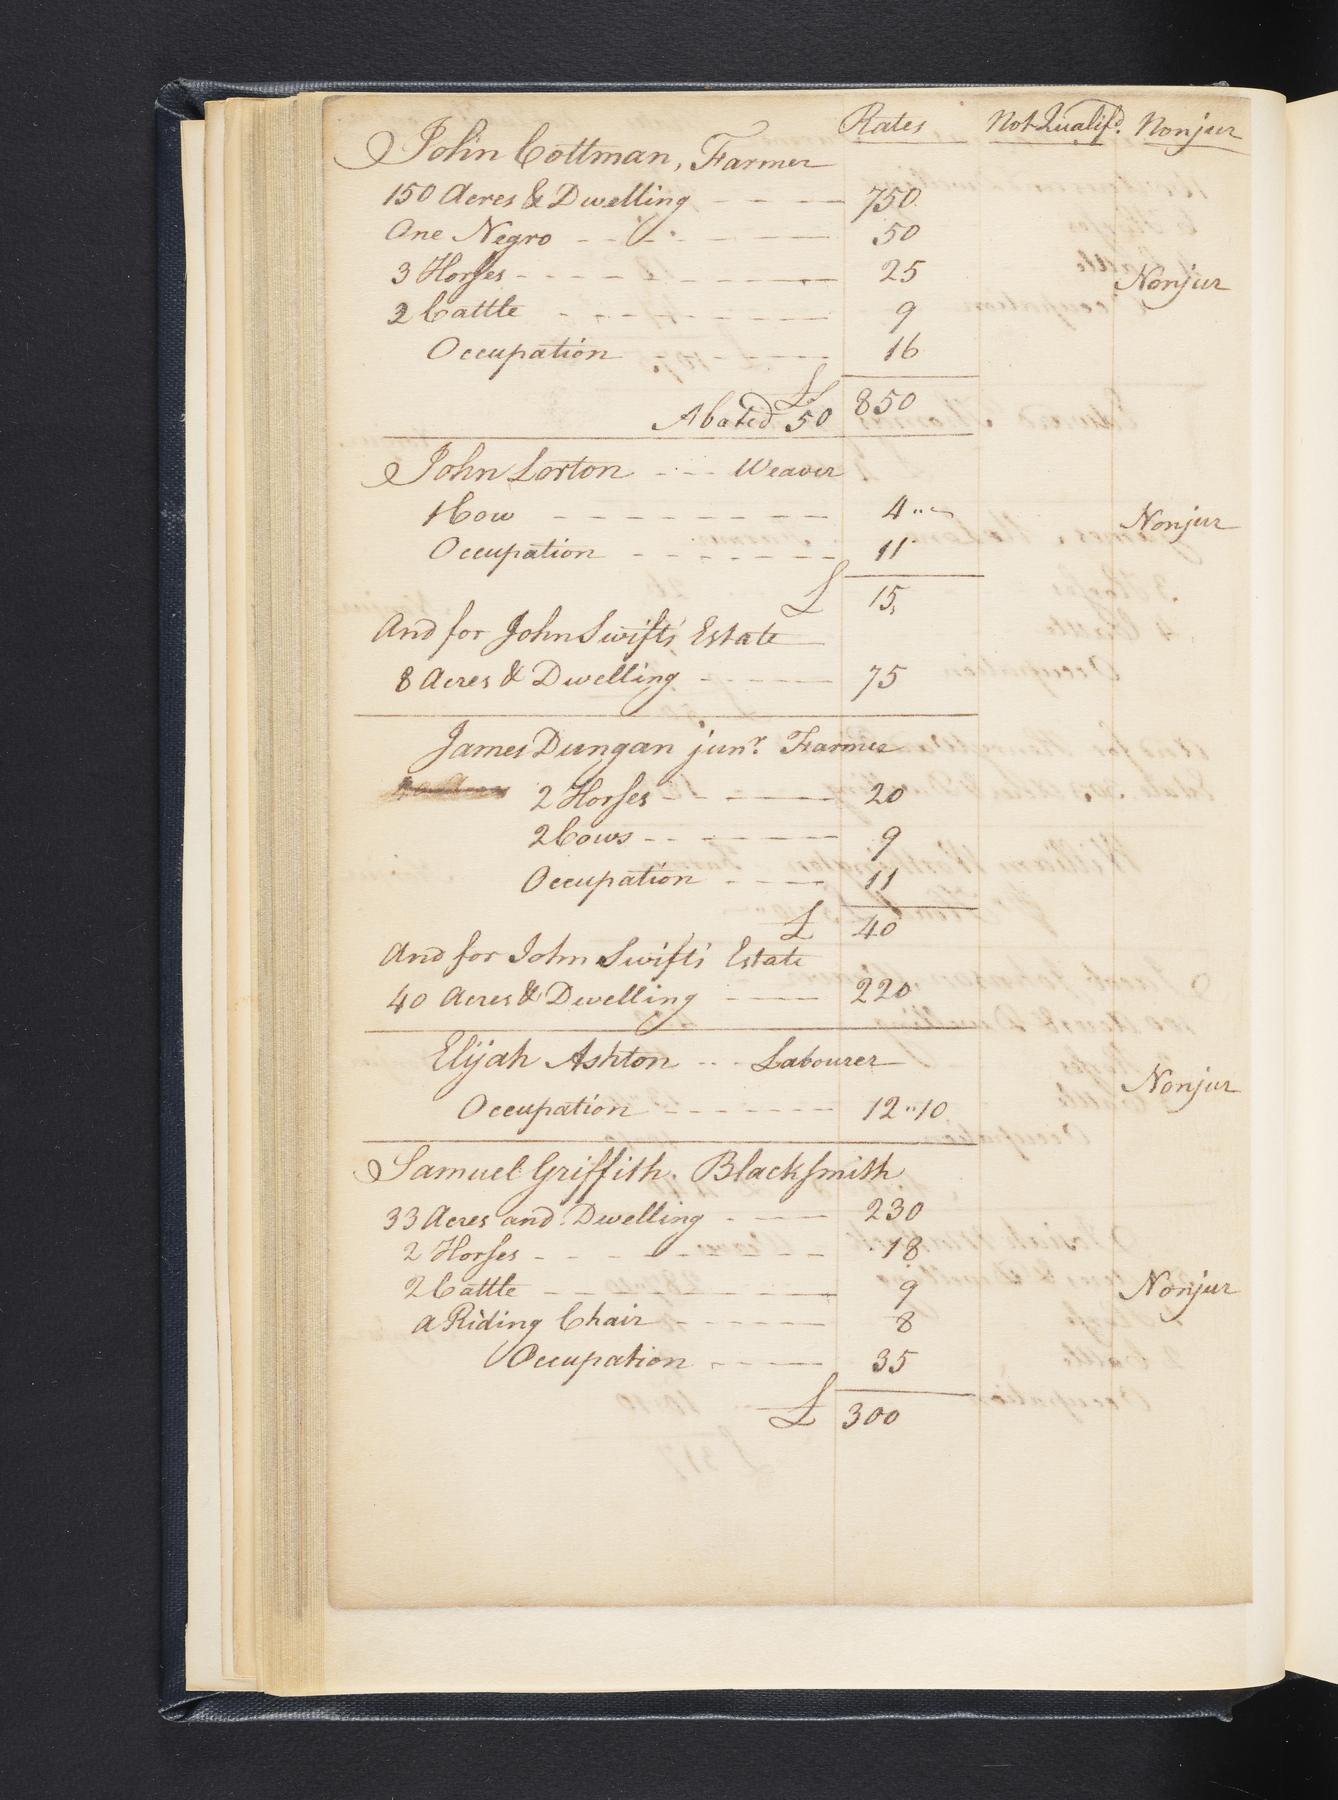 Rates Not Qualifd. Nonjur
John Cottman, Farmer
150 Acres & Dwelling 750
One Negro 50
3 Horses 25 Nonjur
2 Cattle 9
Occupation 16
£ 850
Abated 50
John Lorton Weaver
1 Cow 4 Nonjur
Occupation 11
£ 15
And for John Swifts Estate
8 Acres & Dwelling 75
James Dungan junr. Farmer
2 Horses 20
2 Cows 9
Occupation 11
£ 40
And for John Swifts Estate
40 Acres & Dwelling 220
Elijah Ashton Labourer
Occupation 12"10 Nonjur
Samuel Griffith. Blacksmith
33 Acres and Dwelling 230
2 Horses 18
2 Cattle 9 Nonjur
a Riding Chair 8
Occupation 35
£ 300